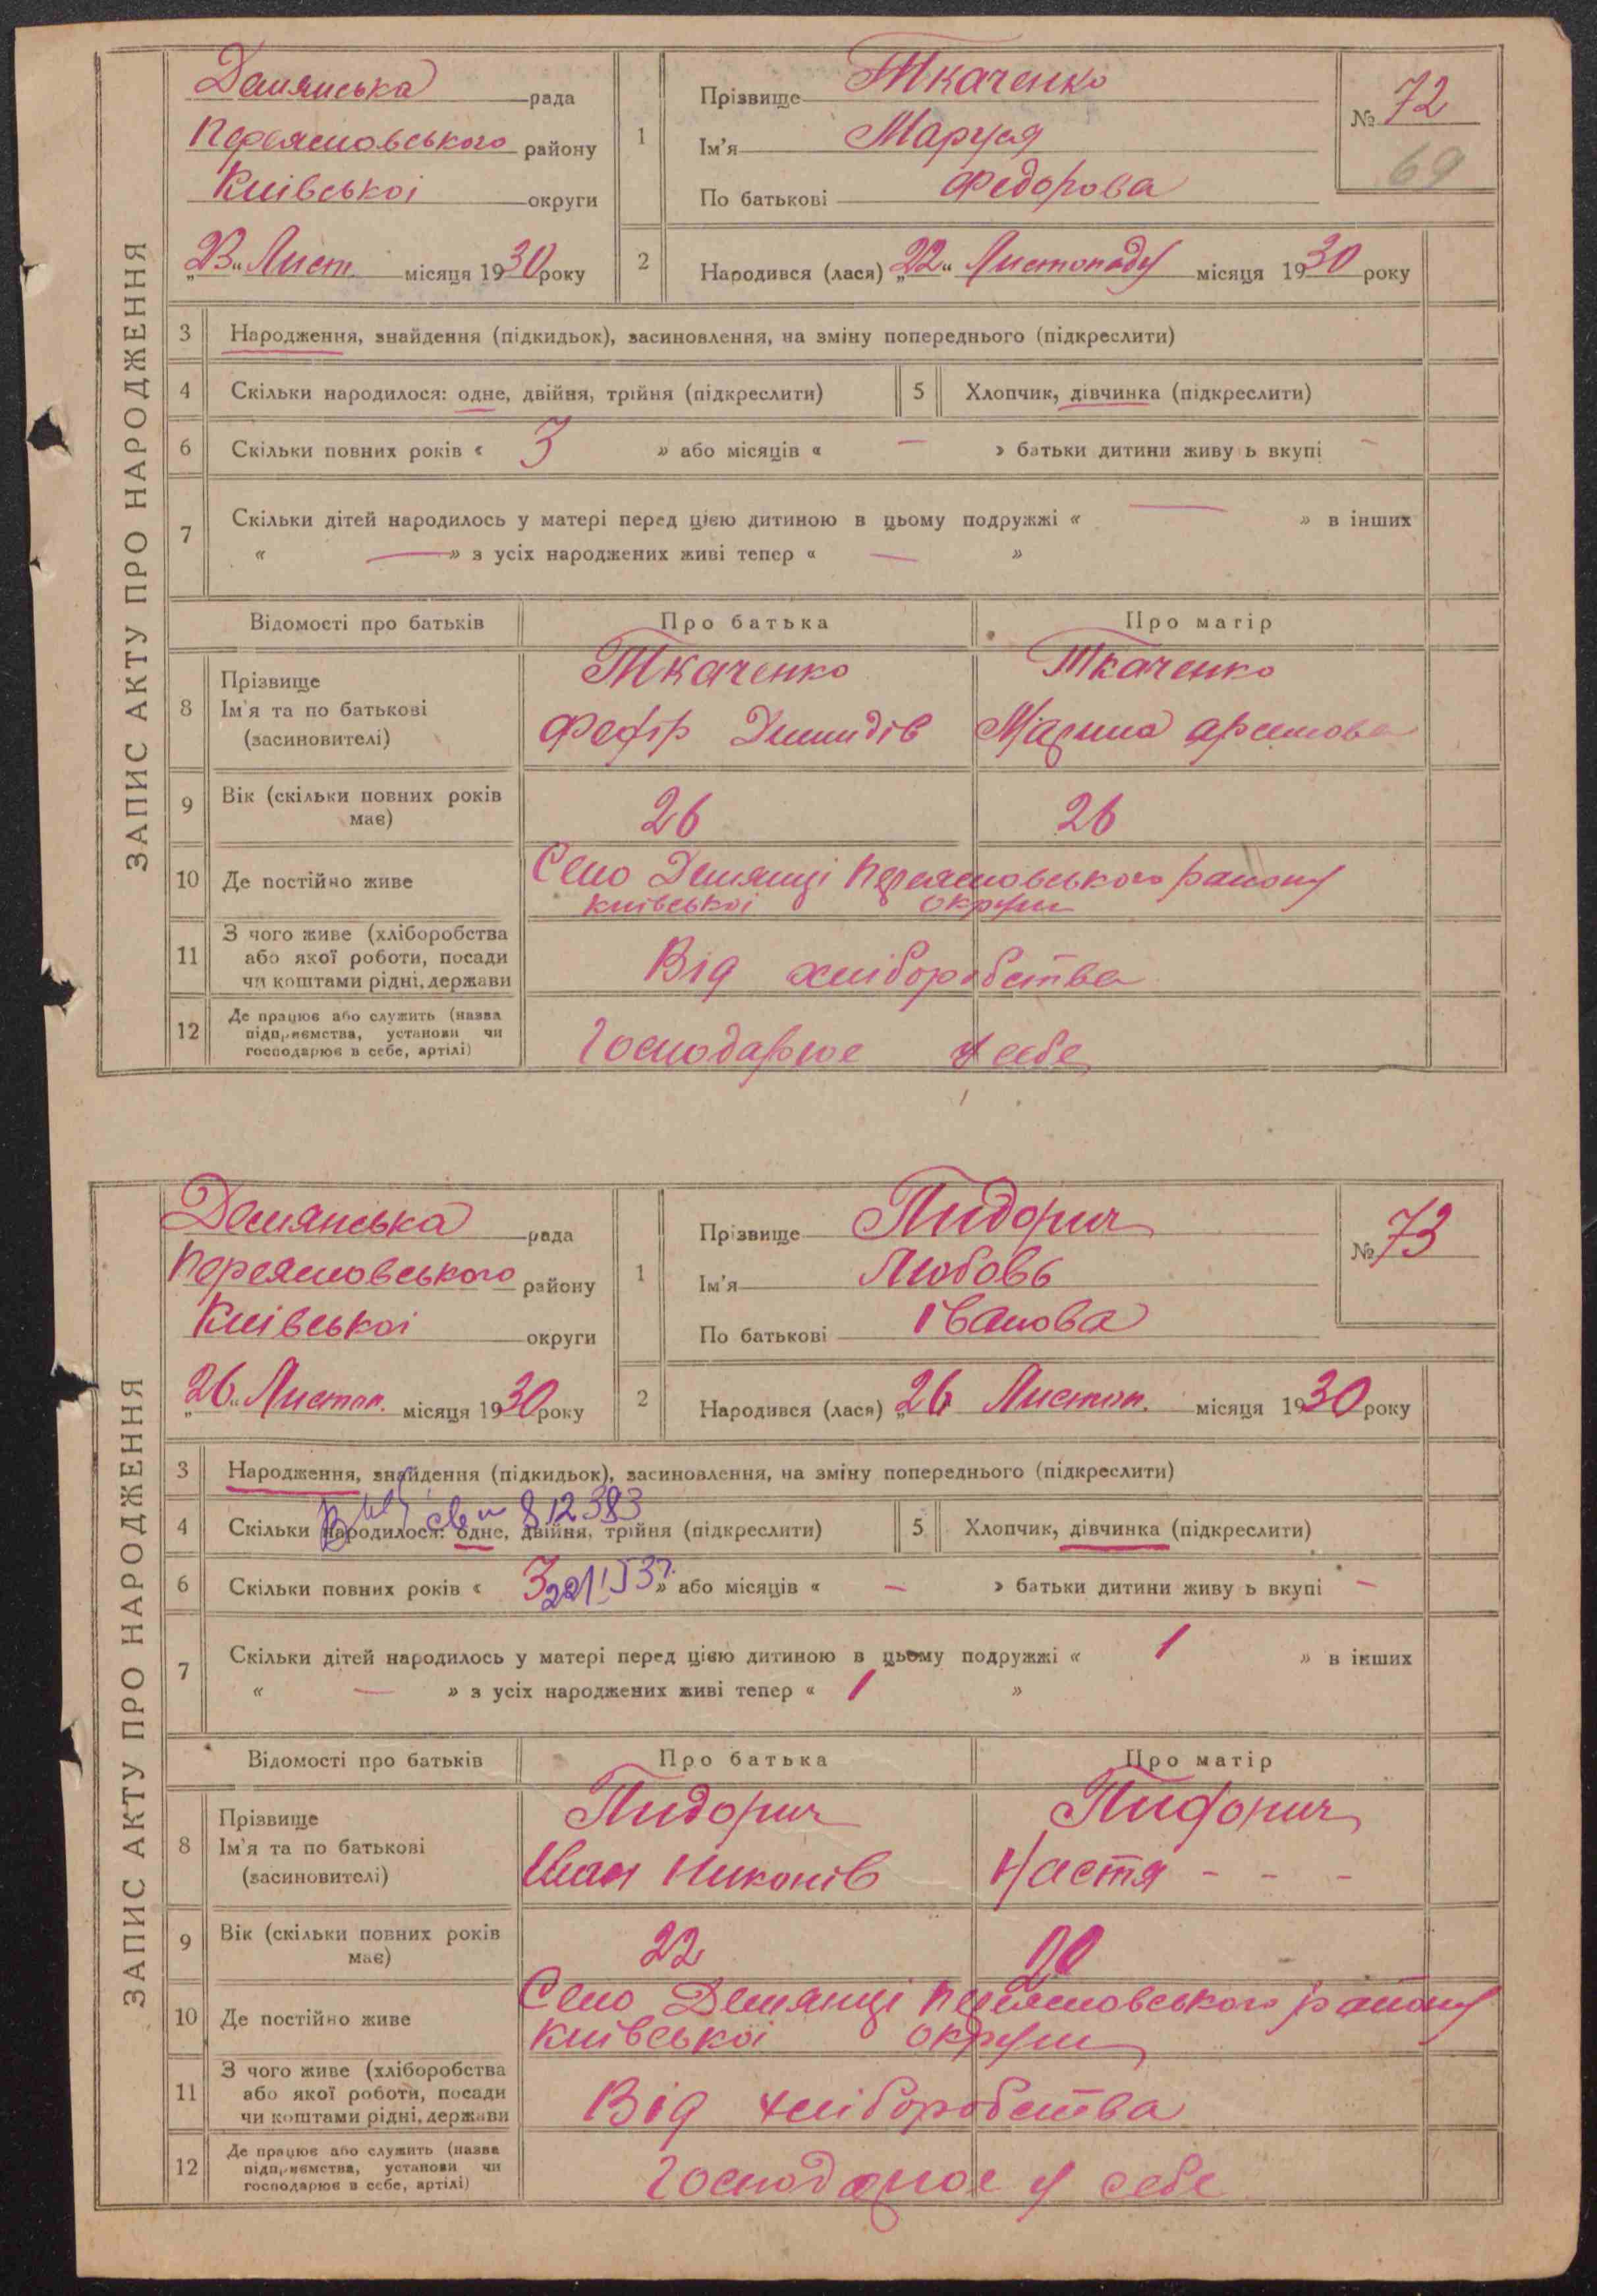 ЗАПИС АКТУ ПРО НАРОДЖЕННЯ
Демянська рада
Переясловського району
Київської округи
„23“ Лист. місяця 1930 року
1 Прізвище Ткаченко
Ім'я Маруся
По батькові Федорова
№ 72
69
2 Народився (лася) „22“ Листопаду місяця 1930 року
3 Народження, знайдення (підкидьок), засиновлення, на зміну попереднього (підкреслити)
4 Скільки народилося: одне, двійня, трійня (підкреслити) 5 Хлопчик, дівчинка (підкреслити)
6 Скільки повних років « 3 » або місяців « — » батьки дитини живу ь вкупі —
7 Скільки дітей народилось у матері перед цією дитиною в цьому подружжі « — » в інших
« — » з усіх народжених живі тепер « — »
Відомості про батьків Про батька Про матір
8 Прізвище Ім'я та по батькові (засиновителі)
Ткаченко Ткаченко
Федір Демидів Марина
9 Вік (скільки повних років має) 26 26
10 Де постійно живе Село Демянці Переясловського району
Київської округи
11 З чого живе (хліборобства або якої роботи, посади чи коштами рідні, держави Від хліборобства
12 Де працює або служить (назва підприємства, установи чи господарює в себе, артілі) Господарює у себе
ЗАПИС АКТУ ПРО НАРОДЖЕННЯ
Демянська рада
Переясловського району
Київської округи
„26“ Листоп. місяця 1930 року
1 Прізвище Пидорич
Ім'я Любовь
По батькові Іванова
№ 73
2 Народився (лася) „26 Листоп. місяця 1930 року
3 Народження, знайдення (підкидьок), засиновлення, на зміну попереднього (підкреслити)
812383
4 Скільки народилося: одне, двійня, трійня (підкреслити) 5 Хлопчик, дівчинка (підкреслити)
6 Скільки повних років « 3 » або місяців « — » батьки дитини живу ь вкупі —
7 Скільки дітей народилось у матері перед цією дитиною в цьому подружжі « 1 » в інших
« — » з усіх народжених живі тепер « 1 »
Відомості про батьків Про батька Про матір
8 Прізвище Ім'я та по батькові (засиновителі)
Пидорич Пидорич
Иван Никонів Настя - - -
9 Вік (скільки повних років має) 22 20
10 Де постійно живе Село Демянці Переясловського району
Київської округи
11 З чого живе (хліборобства або якої роботи, посади чи коштами рідні, держави Від хліборобства
12 Де працює або служить (назва підприємства, установи чи господарює в себе, артілі) Господарює у себе